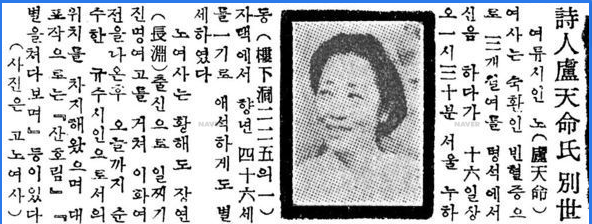 詩人盧天命氏別世
여류시인 노(盧天命)
여사는 숙환인 빈혈증으
로 三개월여를 병석에서
신음 하다가 十六일상
오一시三十분 서울 누하
동(樓下洞二二五의一)
자택에서 향년 四十六세
를 一기로 애석하게도 별
세하였다
노여사는 황해도 장연
(長淵)출신으로 일찌기
진명여고를 거쳐 이화여
전을나온후 오늘까지 순
수한 규수시인으로서의
위치를 차지해왔으며 대
표작으로는『산호림』『
별을쳐다보며』등이있다
(사진은 고노여사)
NAVER
NAVER
NAVER